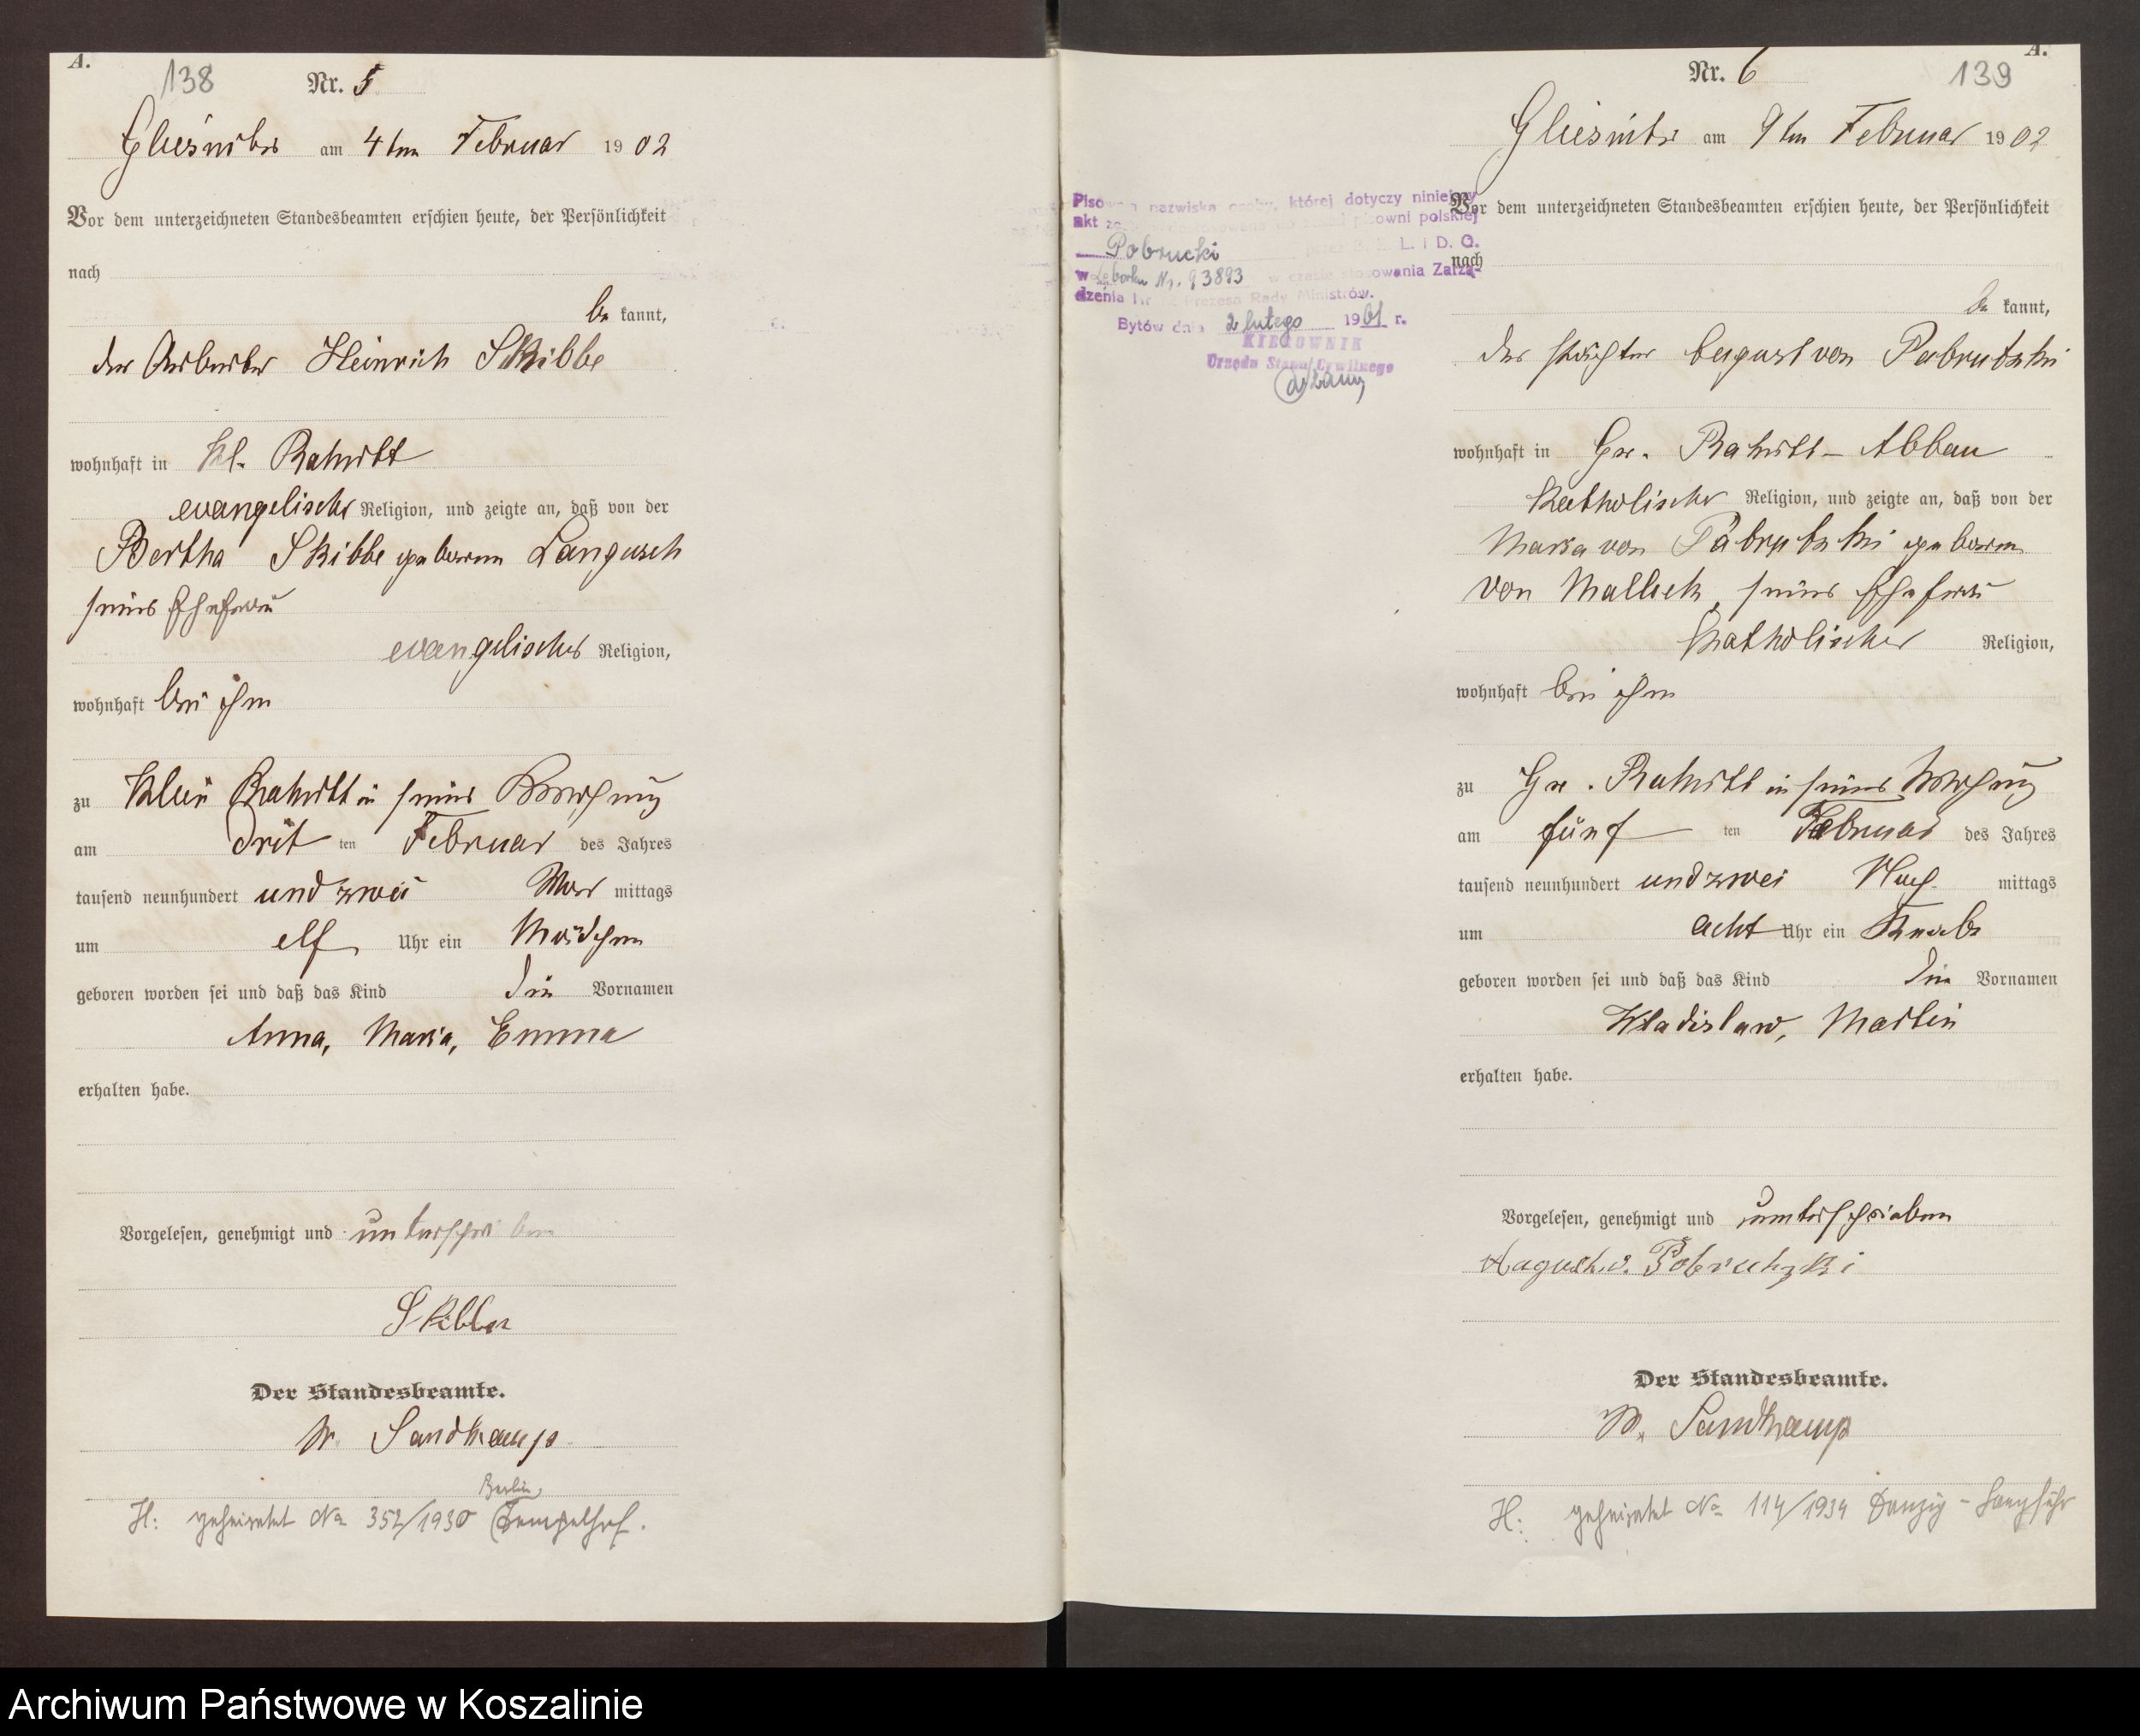 A.
138
Nr. 5
Gliesnitz am 4ten Februar 1902
Vor dem unterzeichneten Standesbeamten erschien heute, der Persönlichkeit
nach
be kannt,
der Arbeiter Heinrich Skibbe
wohnhaft in Kl. Rakitt
evangelischer Religion, und zeigte an, daß von der
Bertha Skibbe geborene Langusch
seiner Ehefrau
evangelischer Religion,
wohnhaft bei ihm
zu Klein Rakitt in seiner Wohnung
am drit ten Februar des Jahres
tausend neunhundert und zwei Vor mittags
um elf Uhr ein Mädchen
geboren worden sei und daß das Kind die Vornamen
Anna, Maria, Emma
erhalten habe.
Vorgelesen, genehmigt und unterschrieben
Skibbe
Der Standesbeamte.
W. Sandkamp
Berlin
H: geheiratet No 352/1930 Tempelhof.
A.
Nr. 6
139
Gliesnitz am 9ten Februar 1902
Pisownia nazwiska osoby, której dotyczy niniejszy
akt pisowni polskiej
Pobrucki L. i D. G.
w Lęborku Nr. 93893 w czasie stosowania Zarzą-
dzenia Nr Prezesa Rady Ministrów.
Bytów dnia 2 lutego 1961 r.
KIEROWNIK
Urzędu Stanu Cywilnego
Vor dem unterzeichneten Standesbeamten erschien heute, der Persönlichkeit
nach
be kannt,
der Pächter August von Pobrutzki
wohnhaft in Gr. Rakitt-Abbau
Katholischer Religion, und zeigte an, daß von der
Maria von Pobrutzki geborene
von Mallek, seiner Ehefrau
Katholischer Religion,
wohnhaft bei ihm
zu Gr. Rakitt in seiner Wohnung
am fünf ten Februar des Jahres
tausend neunhundert und zwei Nach mittags
um acht Uhr ein Knabe
geboren worden sei und daß das Kind die Vornamen
Wladislaw, Martin
erhalten habe.
Vorgelesen, genehmigt und unterschrieben
August v. Pobrutzki
Der Standesbeamte.
W. Sandkamp
H: geheiratet No 114/1934 Danzig-Langfuhr
Archiwum Państwowe w Koszalinie